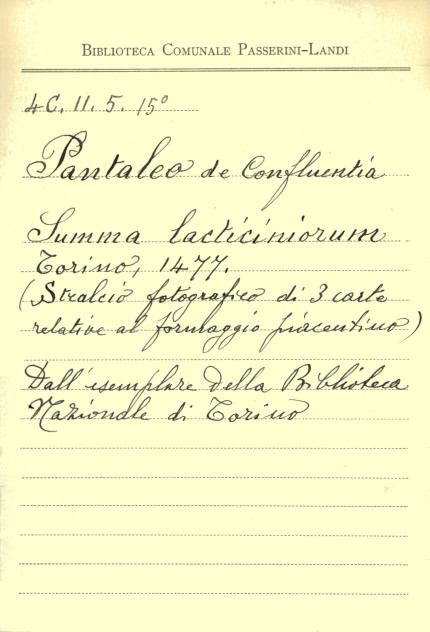 BIBLIOTECA COMUNALE PASSERINI-LANDI
4C. II. 5. 15°
Pantaleo de Confluentia
Summa lacticiniorum
Torino, 1477.
(Stralcio fotografico di 3 carte
relative al formaggio piacentino)
Dall'esemplare della Biblioteca
Nazionale di Torino